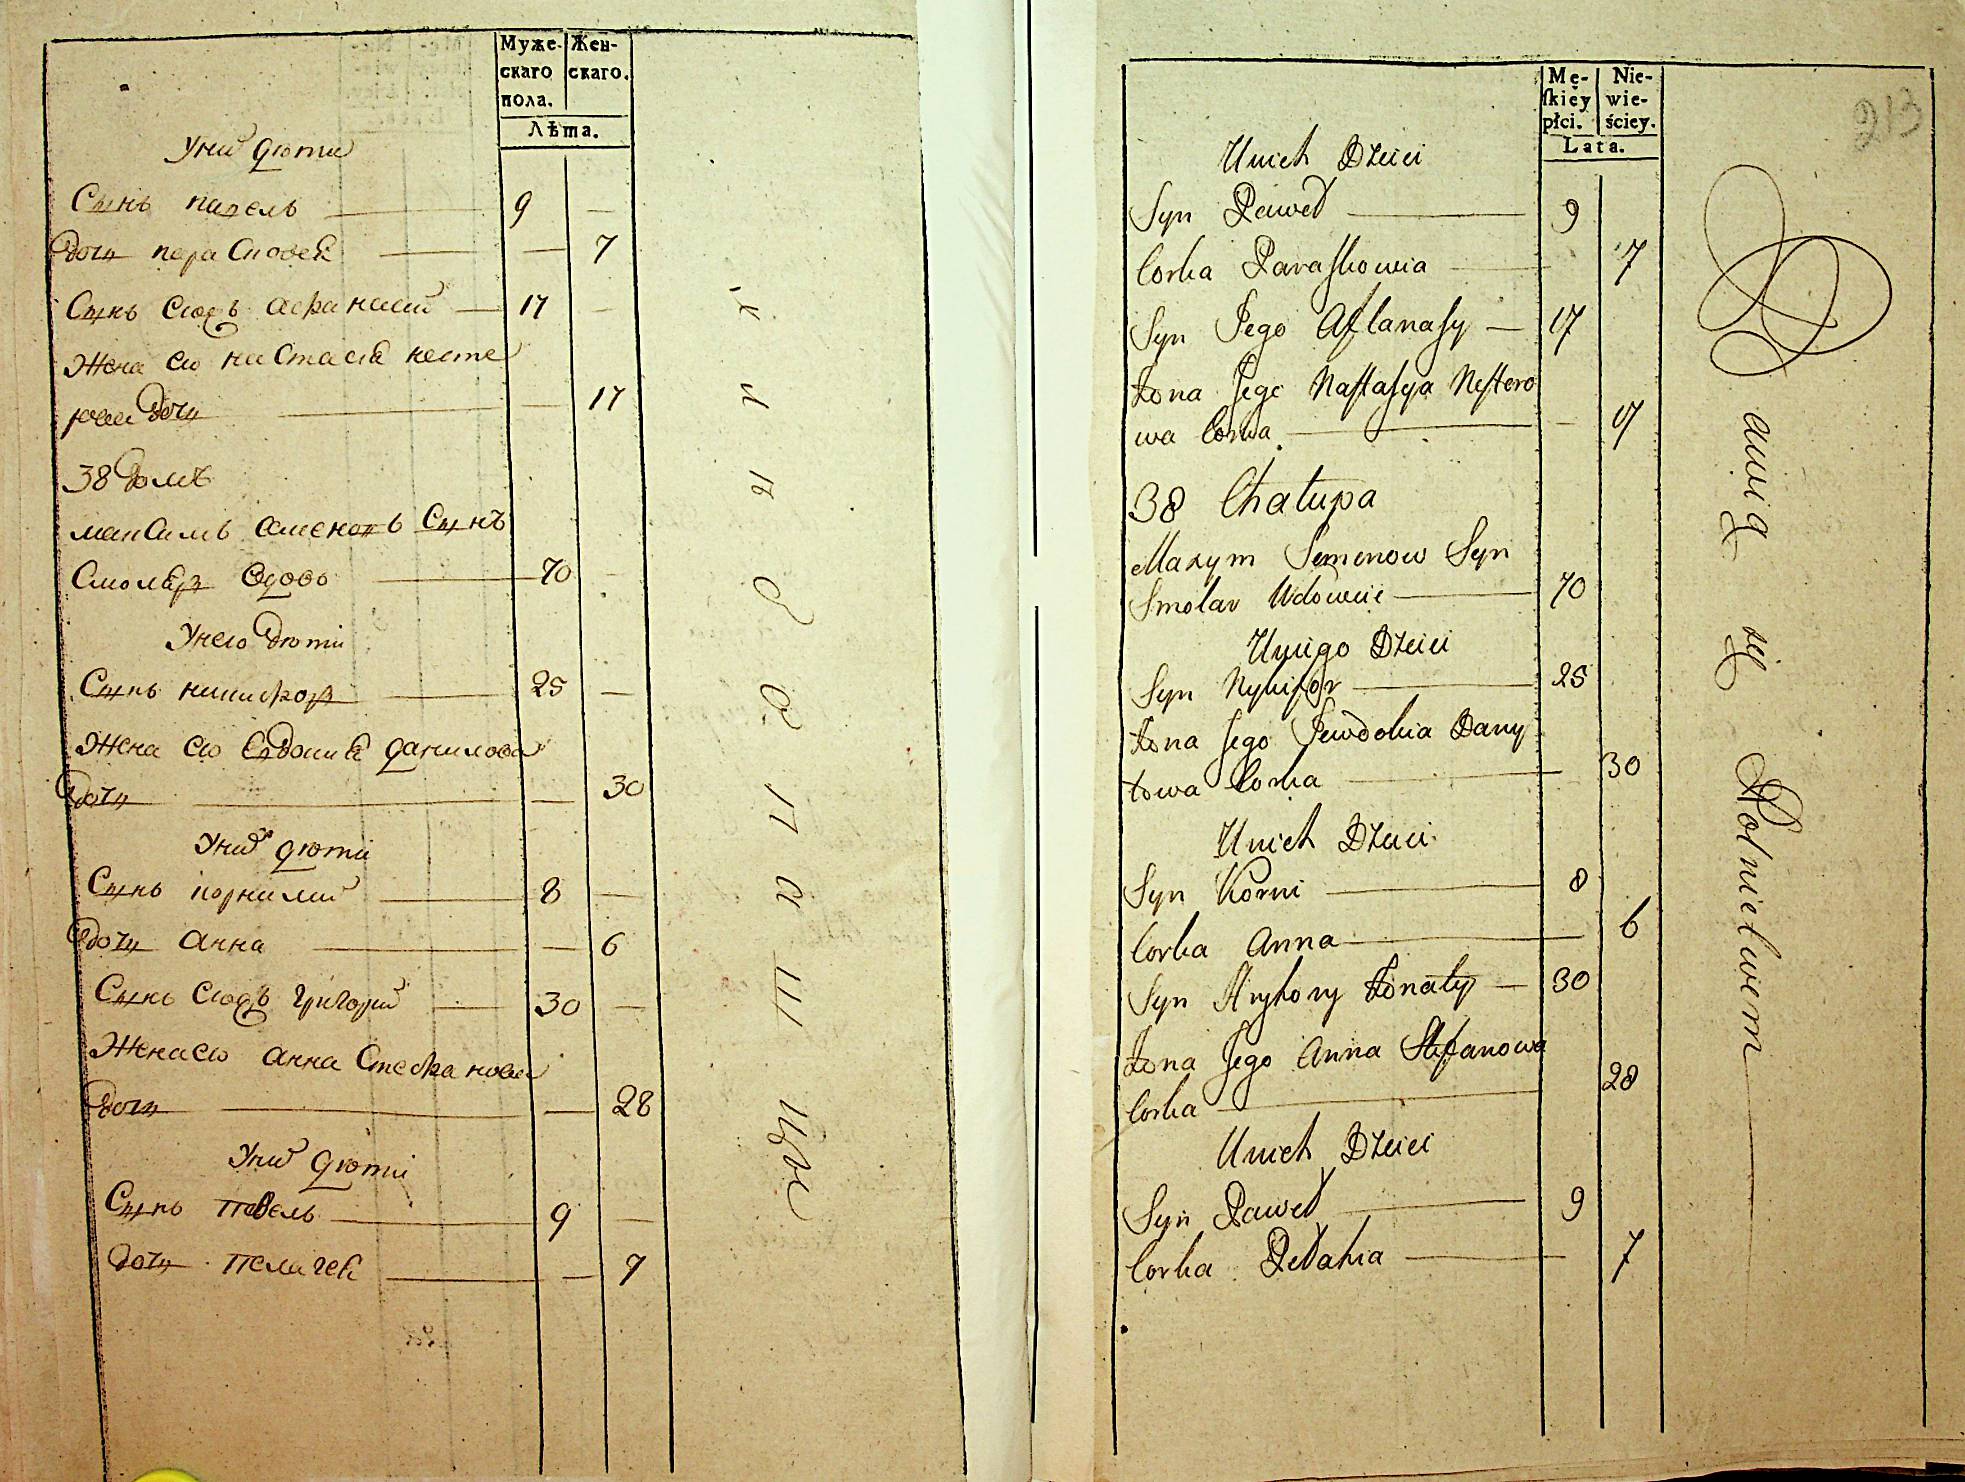 Муже-
скаго
пола.
Жен-
скаго.
Лѣта.
Унихъ дѣти
Сынъ павелъ 9
дочь параСковея 7
Сынъ Сюдъ афанасий 17
Жена ево настасия несте
рова дочь 17
38 домъ
максимъ семеновъ Сынъ
Смоляр вдовъ 70
Унего дѣти
Сынъ никифор 25
Жена ево Евдокия данилова
дочь 30
Унихъ дѣти
Сынъ корнилий 8
дочь анна 6
Сынъ Сюдъ григорий 30
Жена ево анна Стефанова
дочь 28
Унихъ дѣти
Сынъ павелъ 9
дочь пелагея 7
Mę-
ſkiéy
płci.
Nie-
wie-
ściey.
Lata.
213
Unich Dzieci
Syn Paweł 9
Corka Paraſkowia 7
Syn Jego Affanaſy 17
Żona Jego Naſtaſya Neſtero
wa Corka 17
38 Chałupa
Maxym Semenow Syn
Smolar Wdowiec 70
Uniego Dzieci
Syn Nykifor 25
Żona Jego Jewdokia Dany
łowa Corka 30
Unich Dzieci
Syn Korni 8
Corka Anna 6
Syn Hryhory Żonaty 30
Żona Jego Anna Stefanowa
Corka 28
Unich Dzieci
Syn Paweł 9
Corka Pełahia 7
Bawią się Rolnictwem